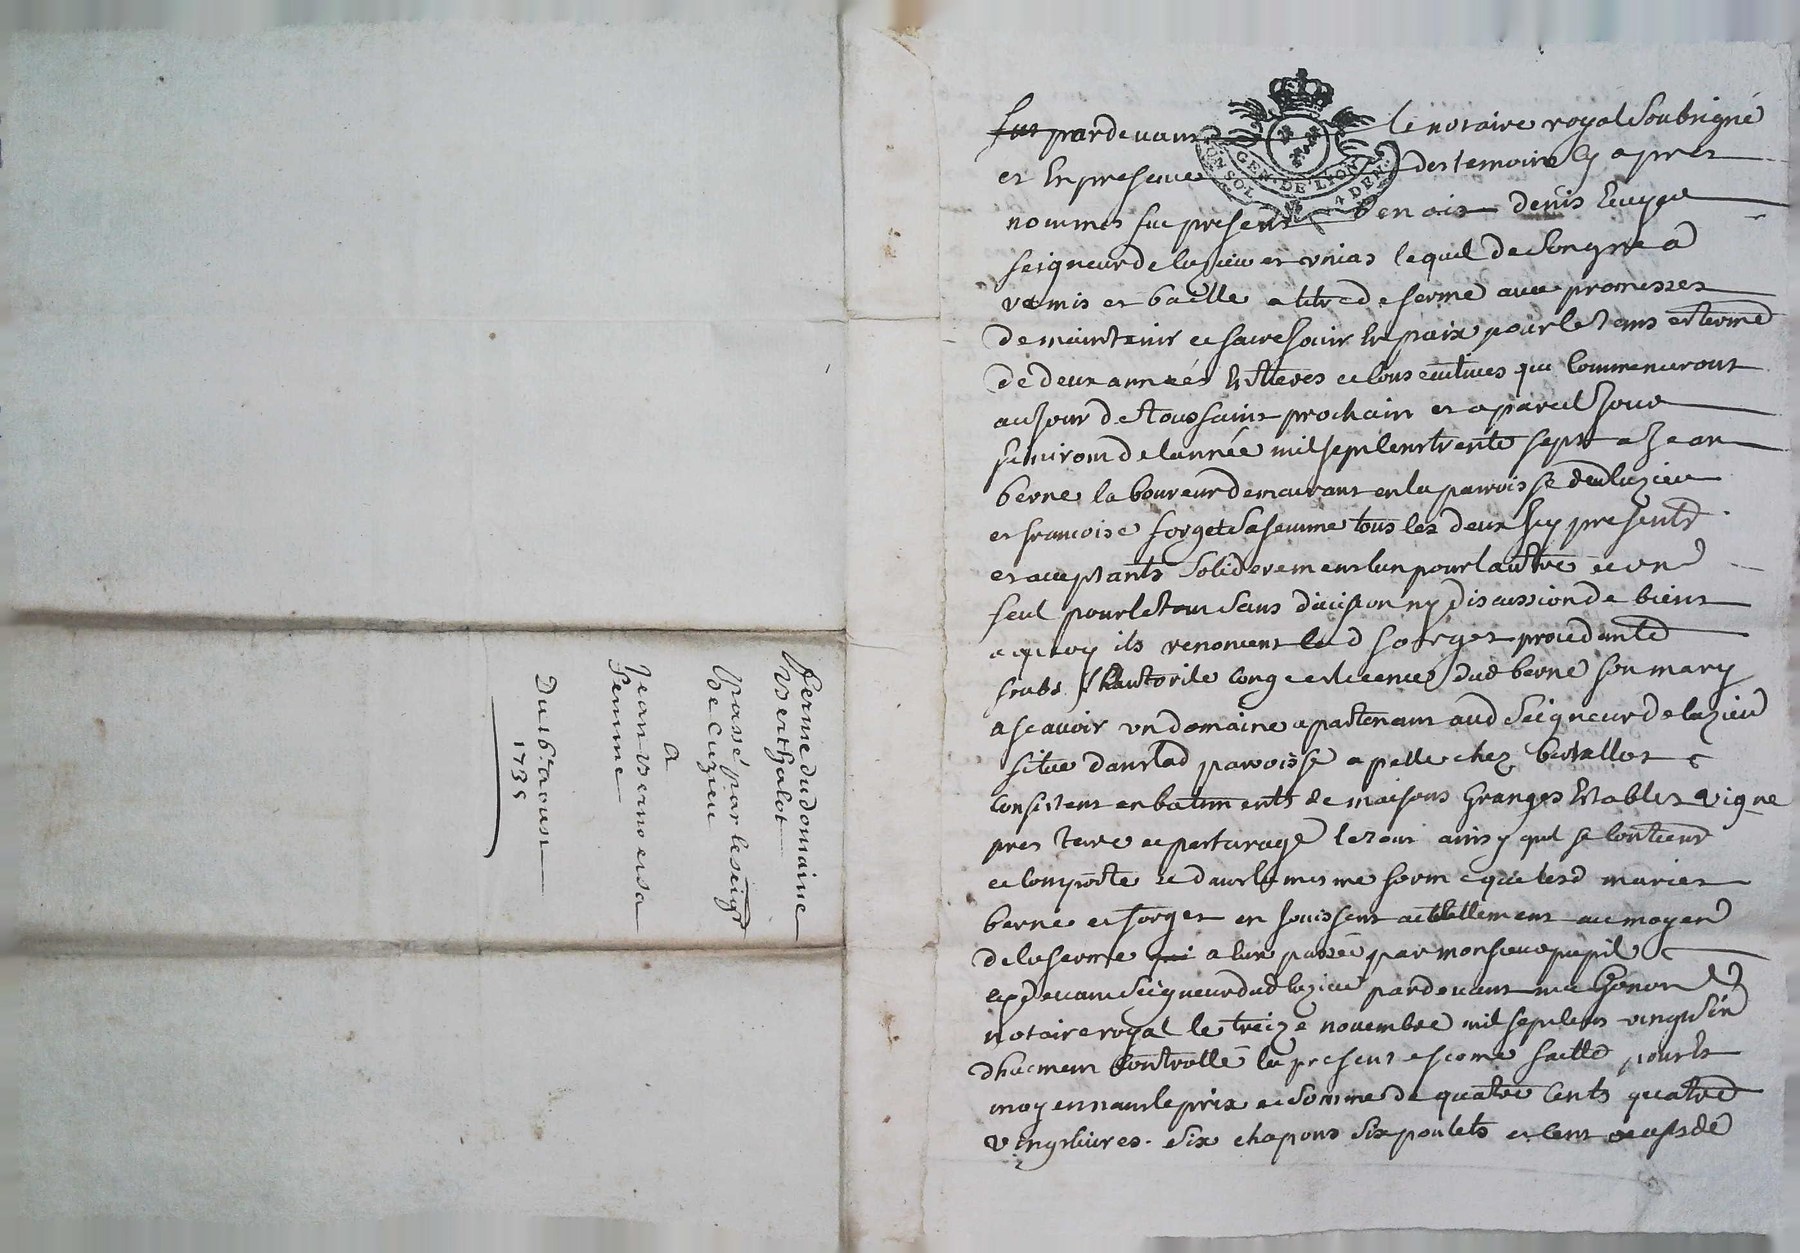 ferme du domaine
Bertholot
passé par le seigr
de Cuzieu
A
Jean Berne et sa
femme
Du 16e aoust
1735
GEN · DE · LYON
UN SOL 4 DEN ·
fut pardevant le notaire royal Soubsigné
et En presence des temoins Cy apres
nommes fut present benoist denis Ecuyer
seigneur de Cuzieu et unias lequel de Son gré a
remis et baillé a titre de ferme avec promesses
de maintenir et faire Jouir En paix pour le tems et terme
de deux années Entieres et Consecutives qui Commenceront
au Jour de toussaint prochain et a pareil Jour
finiront de lannée mil sept Cent trente sept a Jean
berne laboureur demeurant en la parroisse dud Cuzieu
et francoise forget Sa femme tous les deux Icy presents
et acceptants Soliderement lun pour lautre et un
seul pour le tout Sans division ny discussion de biens
a quoy ils renoncent lad forget procedante
soubs Lhautorité Congé et licence dud berne son mary
a scavoir un domaine apartenant aud Seigneur de Cuzieu
situé dans lad parroisse apellé chez bertollot
Consistent en batiments de maisons Granges Estables vigne
pres terre et pasturage le tout ainsy quil se Contient
et Comporte et dans la mesme forme que lesd mariés
berne et forget en Jouissent actuellement au moyen
de la ferme qui a leur passée par monsieur pupil
cy devant Seigneur dud Cuzieu pardevant me Gonon
notaire royal le treize novembre mil sept Cens vingt Sin
dhuement Controllé la present escome faitte pour Et
moyennant le prix et Somme de quatre Cents quatre
vingt livres · Six chapons Six poulets et Cent oeufs de